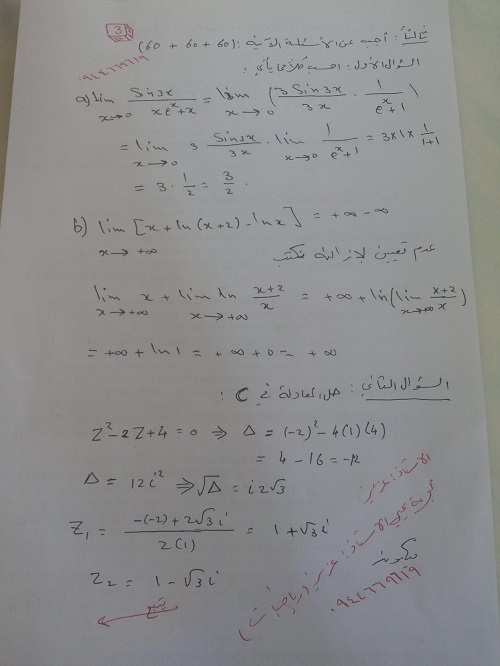 3
ثالثاً: أجب عن الأسئلة الآتية: (60 + 60 + 60)
٠٩٤٤٦٦٩٦١٩
السؤال الأول: احسب كلاً مما يأتي:
a) lim x→0 Sin3x / (xe^x + x) = lim x→0 (3 Sin3x / 3x · 1 / (e^x + 1))
= lim x→0 3 Sin3x / 3x · lim x→0 1 / (e^x + 1) = 3×1× 1/(1+1)
= 3 · 1/2 = 3/2 .
b) lim x→+∞ [x + ln(x+2) - lnx] = +∞ -∞
عدم تعيين لإزالته نكتب
lim x→+∞ x + lim x→+∞ ln (x+2)/x = +∞ + ln(lim x→+∞ (x+2)/x)
= +∞ + ln1 = +∞ + 0 = +∞
السؤال الثاني: حل المعادلة في C :
Z² - 2Z + 4 = 0 ⇒ Δ = (-2)² - 4(1)(4)
= 4 - 16 = -12
Δ = 12i² ⇒ √Δ = i2√3
Z₁ = (-(-2) + 2√3 i) / 2(1) = 1 + √3 i
Z₂ = 1 - √3 i
يتبع
الأستاذ: عزيز
الأستاذ: عزيز (رياضيات)
٠٩٤٤٦٦٩٦١٩